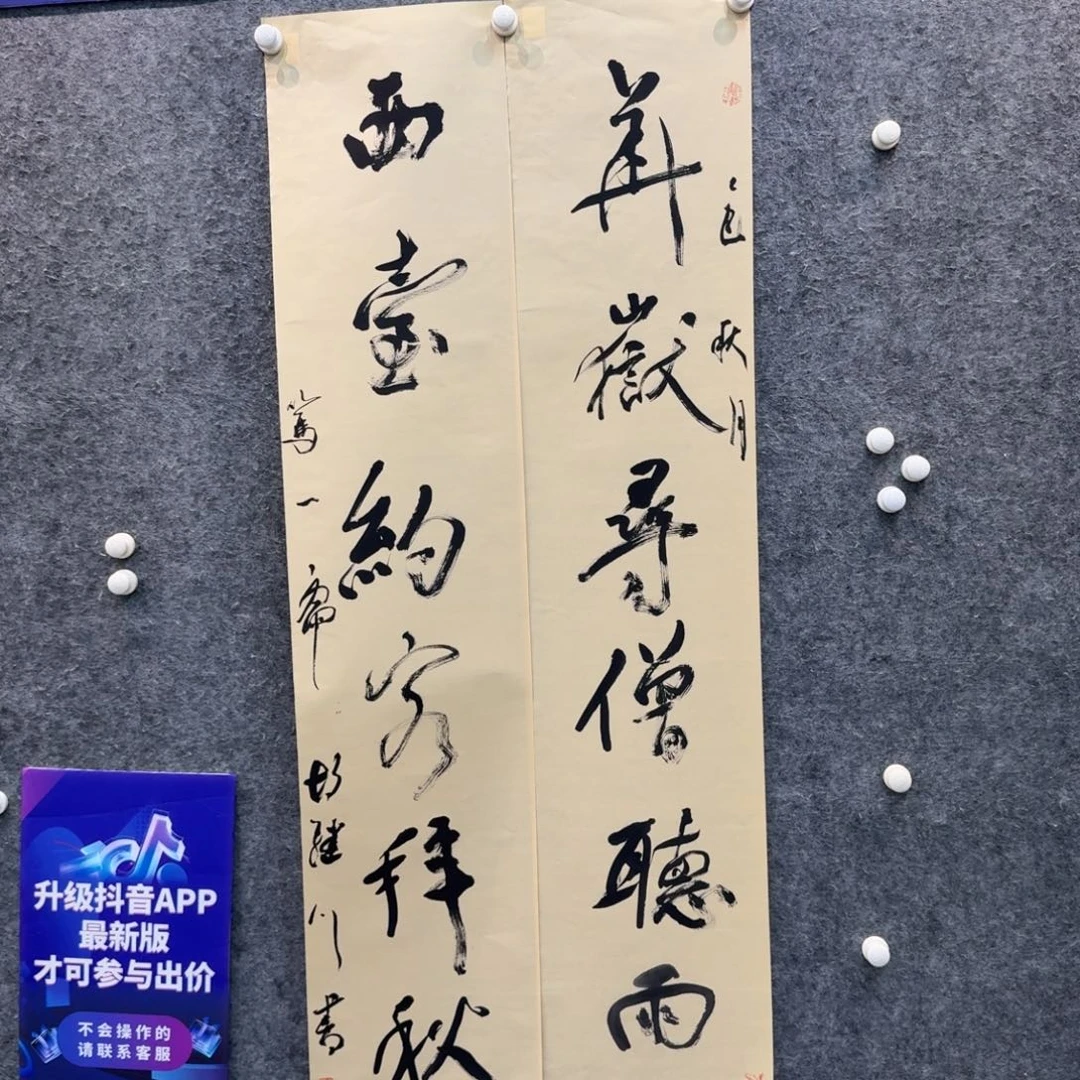 華嶽尋僧聽雨
西臺約客拜秋
秋月
篤一齋
胡繼川書
升级抖音APP
最新版
才可参与出价
不会操作的
请联系客服